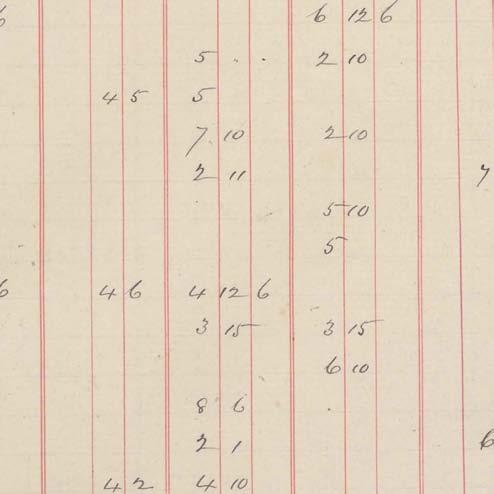 6 6 12 6
5 . . 2 10
4 5 5
7 10 2 10
2 11 7
5 10
5
6 4 6 4 12 6
3 15 3 15
6 10
8 6
2 1 6
4 2 4 10